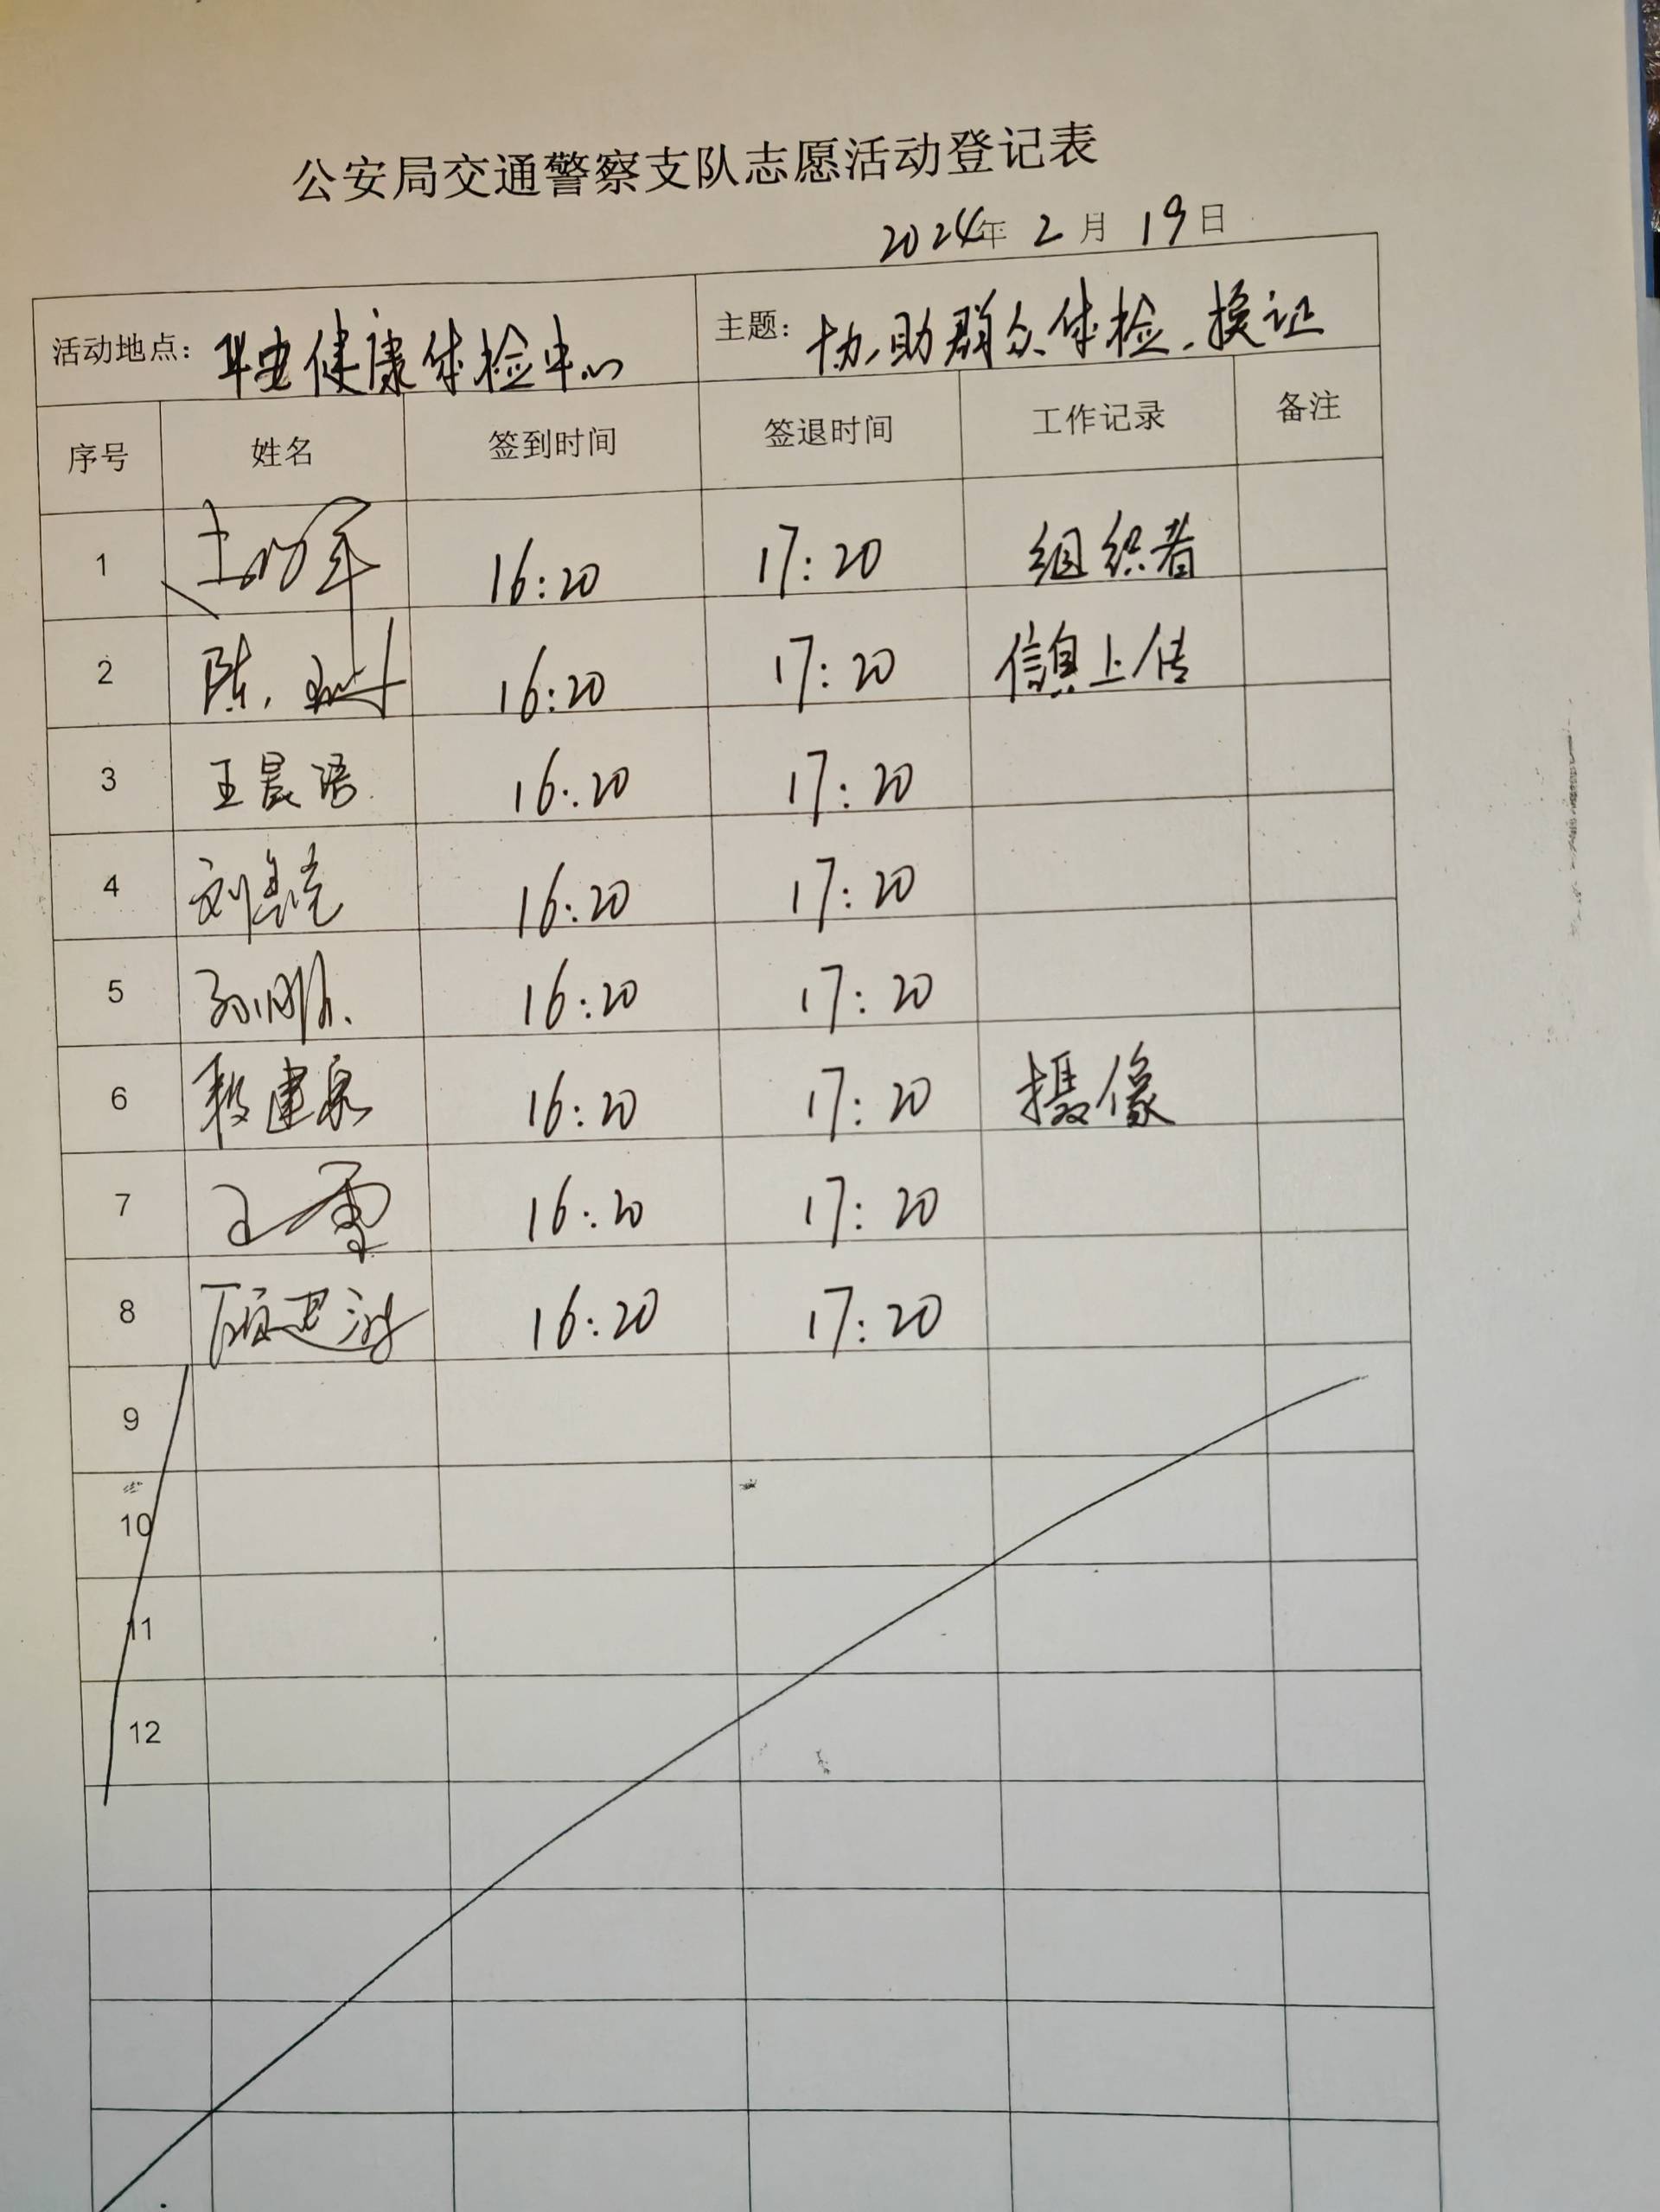 公安局交通警察支队志愿活动登记表
2024年 2月 19日
活动地点: 健康体检中心 主题: 协助群众体检、换证
序号 姓名 签到时间 签退时间 工作记录 备注
1 16:20 17:20 组织者
2 陈 16:20 17:20 信息上传
3 王晨语 16:20 17:20
4 刘 16:20 17:20
5 孙 16:20 17:20
6 段建泉 16:20 17:20 摄像
7 王雪 16:20 17:20
8 顾思 16:20 17:20
9
10
11
12